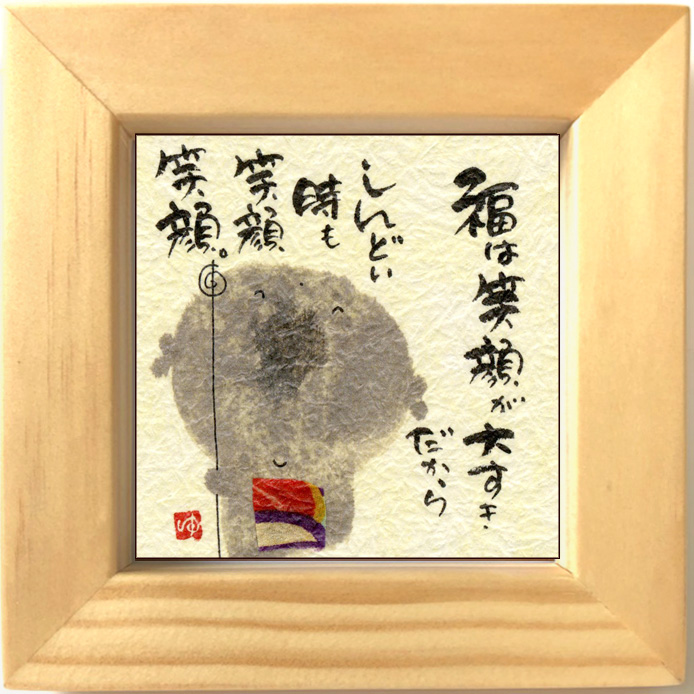 福は笑顔が大すき
だから
しんどい
時も
笑顔
笑顔。
ゆ